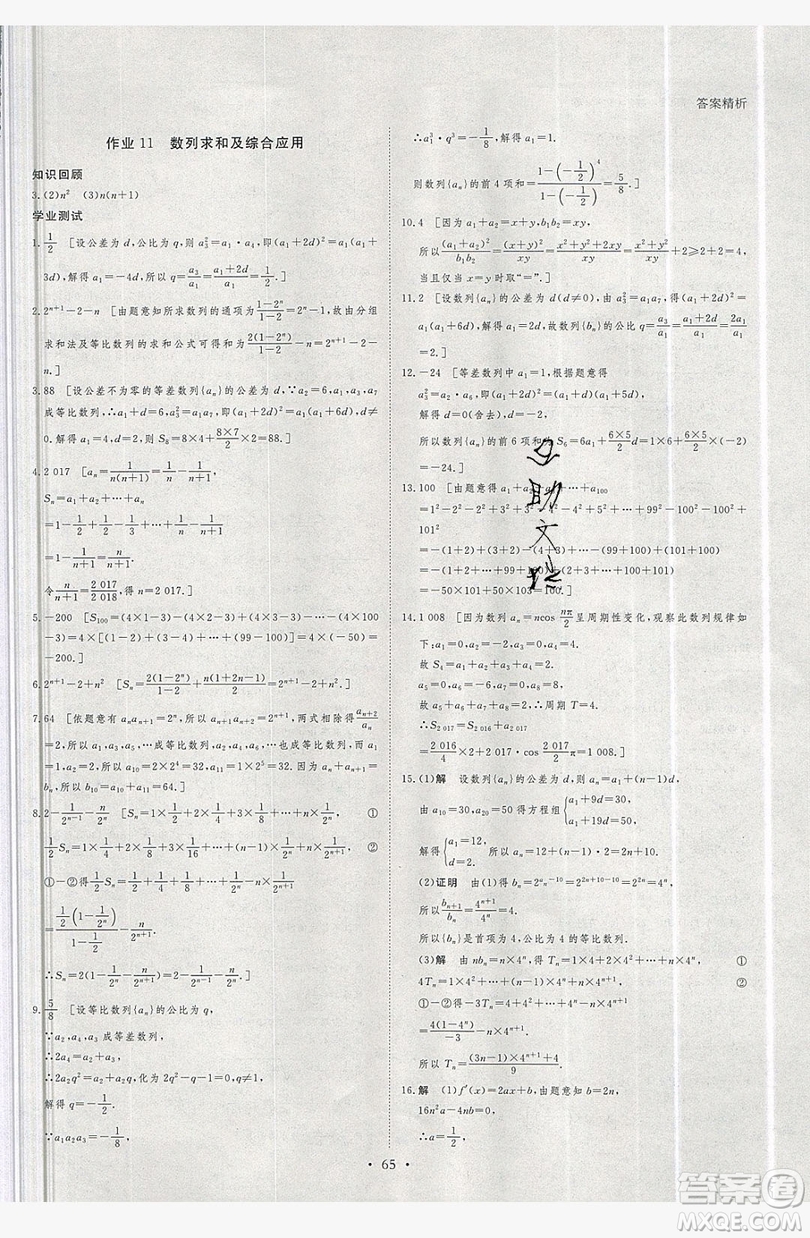 答案精析
作业 11 数列求和及综合应用
知识回顾
3.(2)n² (3)n(n+1)
学业测试
1. 1/2 [设公差为 d,公比为 q,则 a₃²=a₁·a₄,即(a₁+2d)²=a₁(a₁+
3d),解得 a₁=-4d,所以 q=a₃/a₁=(a₁+2d)/a₁=1/2.]
2. 2ⁿ⁺¹-2-n [由题意知所求数列的通项为(1-2ⁿ)/(1-2),故由分组
求和法及等比数列的求和公式可得(2(1-2ⁿ))/(1-2)-n=2ⁿ⁺¹-2-n.]
3. 88 [设公差不为零的等差数列{aₙ}的公差为 d,∵a₂=
成等比数列,∴a₁+d=6,(a₁+2d)²=a₁(a₁+6d),d≠
0.解得 a₁=4,d=2,则 S₈=8×4+(8×7)/2×2=88.]
4. 2 017 [aₙ=1/(n(n+1))=1/n-1/(n+1),
Sₙ=a₁+a₂+⋯+aₙ
=1-1/2+1/2-1/3+⋯+1/n-1/(n+1)
=1-1/(n+1)=n/(n+1).
令 n/(n+1)=2 017/2 018,得 n=2 017.]
5. -200 [S₁₀₀=(4×1-3)-(4×2-3)+(4×3-3)-⋯-(4×100
-3)=4×[(1-2)+(3-4)+⋯+(99-100)]=4×(-50)=
-200.]
6. 2ⁿ⁺¹-2+n² [Sₙ=(2(1-2ⁿ))/(1-2)+(n(1+2n-1))/2=2ⁿ⁺¹-2+n².]
7. 64 [依题意有 aₙaₙ₊₁=2ⁿ,所以 aₙ₊₁aₙ₊₂=2ⁿ⁺¹,两式相除得 aₙ₊₂/aₙ
=2,所以 a₁,a₃,a₅,⋯成等比数列,a₂,a₄,a₆,⋯也成等比数列,
而 a₁=1,a₂=2,所以 a₁₀=2×2⁴=32,a₁₁=1×2⁵=32.又因为 aₙ+aₙ₊₁
=bₙ,所以 b₁₀=a₁₀+a₁₁=64.]
8. 2-1/2ⁿ⁻¹-n/2ⁿ [Sₙ=1×1/2+2×1/4+3×1/8+⋯+n×1/2ⁿ, ①
1/2 Sₙ=1×1/4+2×1/8+3×1/16+⋯+n×1/2ⁿ⁺¹, ②
①-②得 1/2 Sₙ=1/2+1/4+1/8+⋯+1/2ⁿ-n×1/2ⁿ⁺¹
=(1/2(1-1/2ⁿ))/(1-1/2)-n/2ⁿ⁺¹,
∴Sₙ=2(1-1/2ⁿ-n/2ⁿ⁺¹)=2-1/2ⁿ⁻¹-n/2ⁿ.]
9. 5/8 [设等比数列{aₙ}的公比为 q,
∵a₂,a₄,a₃ 成等差数列,
∴2a₄=a₂+a₃,
∴2a₂q²=a₂+a₂q,化为 2q²-q-1=0,q≠1,
解得 q=-1/2.
又∵a₁a₂a₃=-1/8,
∴a₁³·q³=-1/8,解得 a₁=1.
则数列{aₙ}的前 4 项和=(1-(-1/2)⁴)/(1-(-1/2))=5/8.]
10. 4 [因为 a₁+a₂=x+y,b₁b₂=xy,
所以(a₁+a₂)²/(b₁b₂)=(x+y)²/(xy)=(x²+y²+2xy)/(xy)≥(2xy+2xy)/(xy)=4,
当且仅当 x=y 时取“=”.]
11. 2 [设数列{aₙ}的公差为 d(d≠0),由 a₃²=a₁a₇,得(a₁+2d)²=
a₁(a₁+6d),解得 a₁=2d,故数列{bₙ}的公比 q=a₃/a₁=(a₁+2d)/a₁=2a₁/a₁
=2.]
12. -24 [等差数列中 a₁=1,根据题意得
a₃²=a₂·a₆,即(a₁+2d)²=(a₁+d)(a₁+5d),
解得 d=0(舍去),d=-2,
所以数列{aₙ}的前 6 项和为 S₆=6a₁+(6×5)/2 d=1×6+(6×5)/2×(-2)
=-24.]
13. 100 [由题意得 a₁+a₂+a₃+⋯+a₁₀₀
=1²-2²-2²+3²+3²-4²-4²+5²+⋯+99²-100²-100²+
101²
=-(1+2)+(3+2)-(4+3)+⋯-(99+100)+(101+100)
=-(1+2+⋯+99+100)+(2+3+⋯+100+101)
=-50×101+50×103=100.]
14. 1 008 [因为数列 aₙ=ncos nπ/2 呈周期性变化,观察此数列规律如
下:a₁=0,a₂=-2,a₃=0,a₄=4.
故 S₄=a₁+a₂+a₃+a₄=2.
a₅=0,a₆=-6,a₇=0,a₈=8,
故 a₅+a₆+a₇+a₈=2,∴周期 T=4.
∴S₂ ₀₁₇=S₂ ₀₁₆+a₂ ₀₁₇
=2 016/4×2+2 017·cos 2 017/2 π=1 008.]
15. (1)解 设数列{aₙ}的公差为 d,则 aₙ=a₁+(n-1)d,
由 a₁₀=30,a₂₀=50,得方程组{a₁+9d=30, a₁+19d=50,
解得{a₁=12, d=2. 所以 aₙ=12+(n-1)·2=2n+10.
(2)证明 由(1)得 bₙ=2^(aₙ-10)=2²ⁿ⁺¹⁰⁻¹⁰=2²ⁿ=4ⁿ,
所以 bₙ₊₁/bₙ=4ⁿ⁺¹/4ⁿ=4.
所以{bₙ}是首项为 4,公比为 4 的等比数列.
(3)解 由 nbₙ=n×4ⁿ,得 Tₙ=1×4+2×4²+⋯+n×4ⁿ, ①
4Tₙ=1×4²+⋯+(n-1)×4ⁿ+n×4ⁿ⁺¹, ②
①-②,得-3Tₙ=4+4²+⋯+4ⁿ-n×4ⁿ⁺¹
=(4(1-4ⁿ))/(-3)-n×4ⁿ⁺¹.
所以 Tₙ=((3n-1)×4ⁿ⁺¹+4)/9.
16. 解 (1)f′(x)=2ax+b,由题意知 f′(0)=b=2n,
16n²a-4nb=0,
∴a=1/2,
• 65 •
答案圈
MXQE.COM